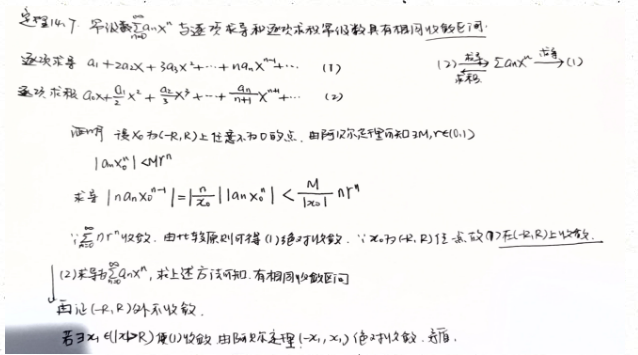 定理14.7 幂级数∑_{n=0}^{∞}aₙxⁿ 与逐项求导和逐项求积幂级数具有相同收敛区间.
逐项求导 a₁+2a₂x+3a₃x²+…+naₙxⁿ⁻¹+… (1) (2) ⇌ ∑aₙxⁿ →(1) 求导 求积 求导
逐项求积 a₀x+a₁/2 x²+a₂/3 x³+…+aₙ/(n+1) xⁿ⁺¹+… (2)
证明 设x₀为(-R,R)上任意不为0的点, 由阿贝尔定理可知∃M,r∈(0,1)
|aₙx₀ⁿ|<Mrⁿ
求导 |naₙx₀ⁿ⁻¹|=|n/x₀||aₙx₀ⁿ|<M/|x₀| nrⁿ
∵∑_{n=0}^{∞}nrⁿ收敛. 由比较原则可得(1)绝对收敛. ∵x₀为(-R,R)任一点 故(1)在(-R,R)上收敛.
(2)求导为∑_{n=0}^{∞}aₙxⁿ, 上述方法可知.有相同收敛区间
再证(-R,R)外不收敛.
若∃x₁∈(|x|>R)使(1)收敛 由阿贝尔定理(-x₁,x₁)绝对收敛. 矛盾.